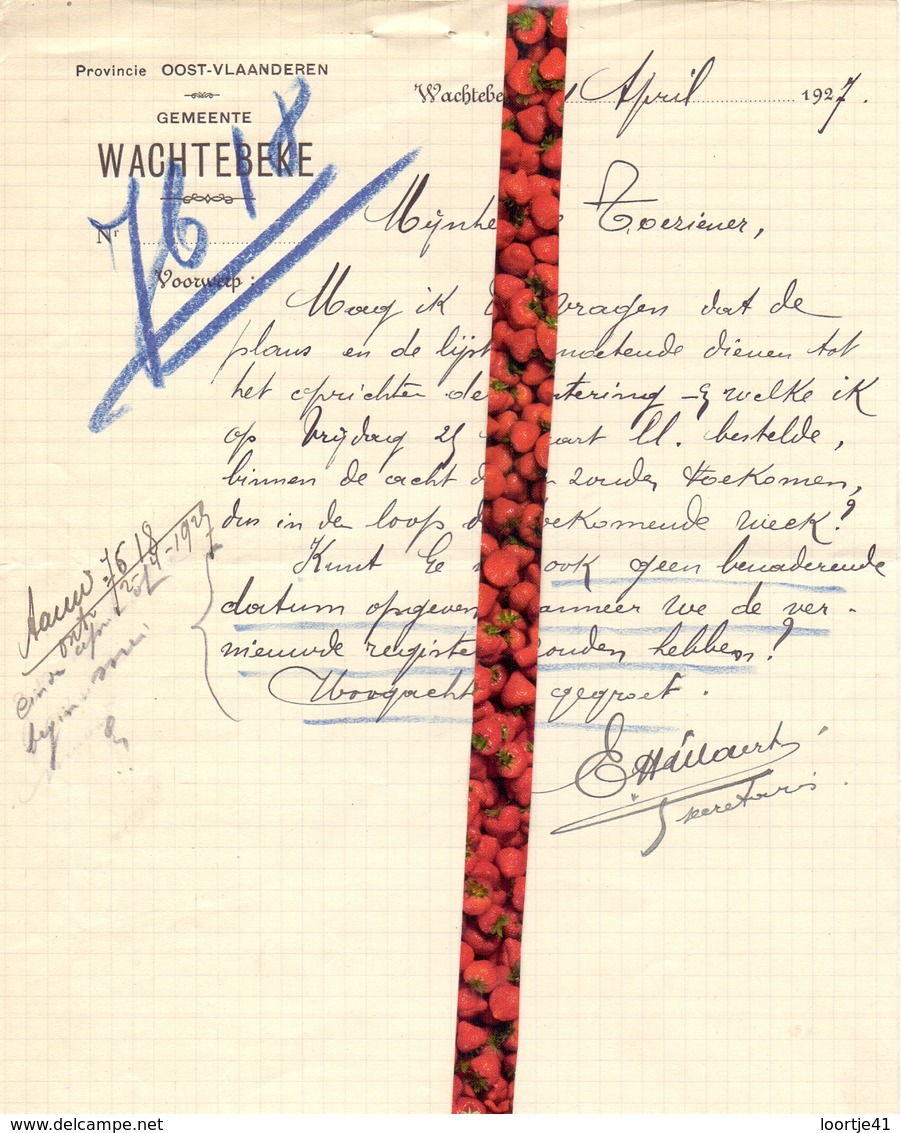 Provincie OOST-VLAANDEREN
GEMEENTE
WACHTEBEKE
Nr
Voorwerp :
7618
Wachtebe 1 April 1927.
Mijnhe Toeziener,
Mag ik vragen dat de
plans en de lijst dienen tot
het oprichten de welke ik
op Vrijdag 25 aart ll. bestelde,
binnen de acht d zouden toekomen,
dus in den loop d oekomende week?
Kunt Ge ook geen benaderende
datum opgeven anneer we de ver-
nieuwde registe ouden hebben?
Hoogacht gegroet.
Secretaris
7618
2-4-1927
begin
delcampe.net
loortje41